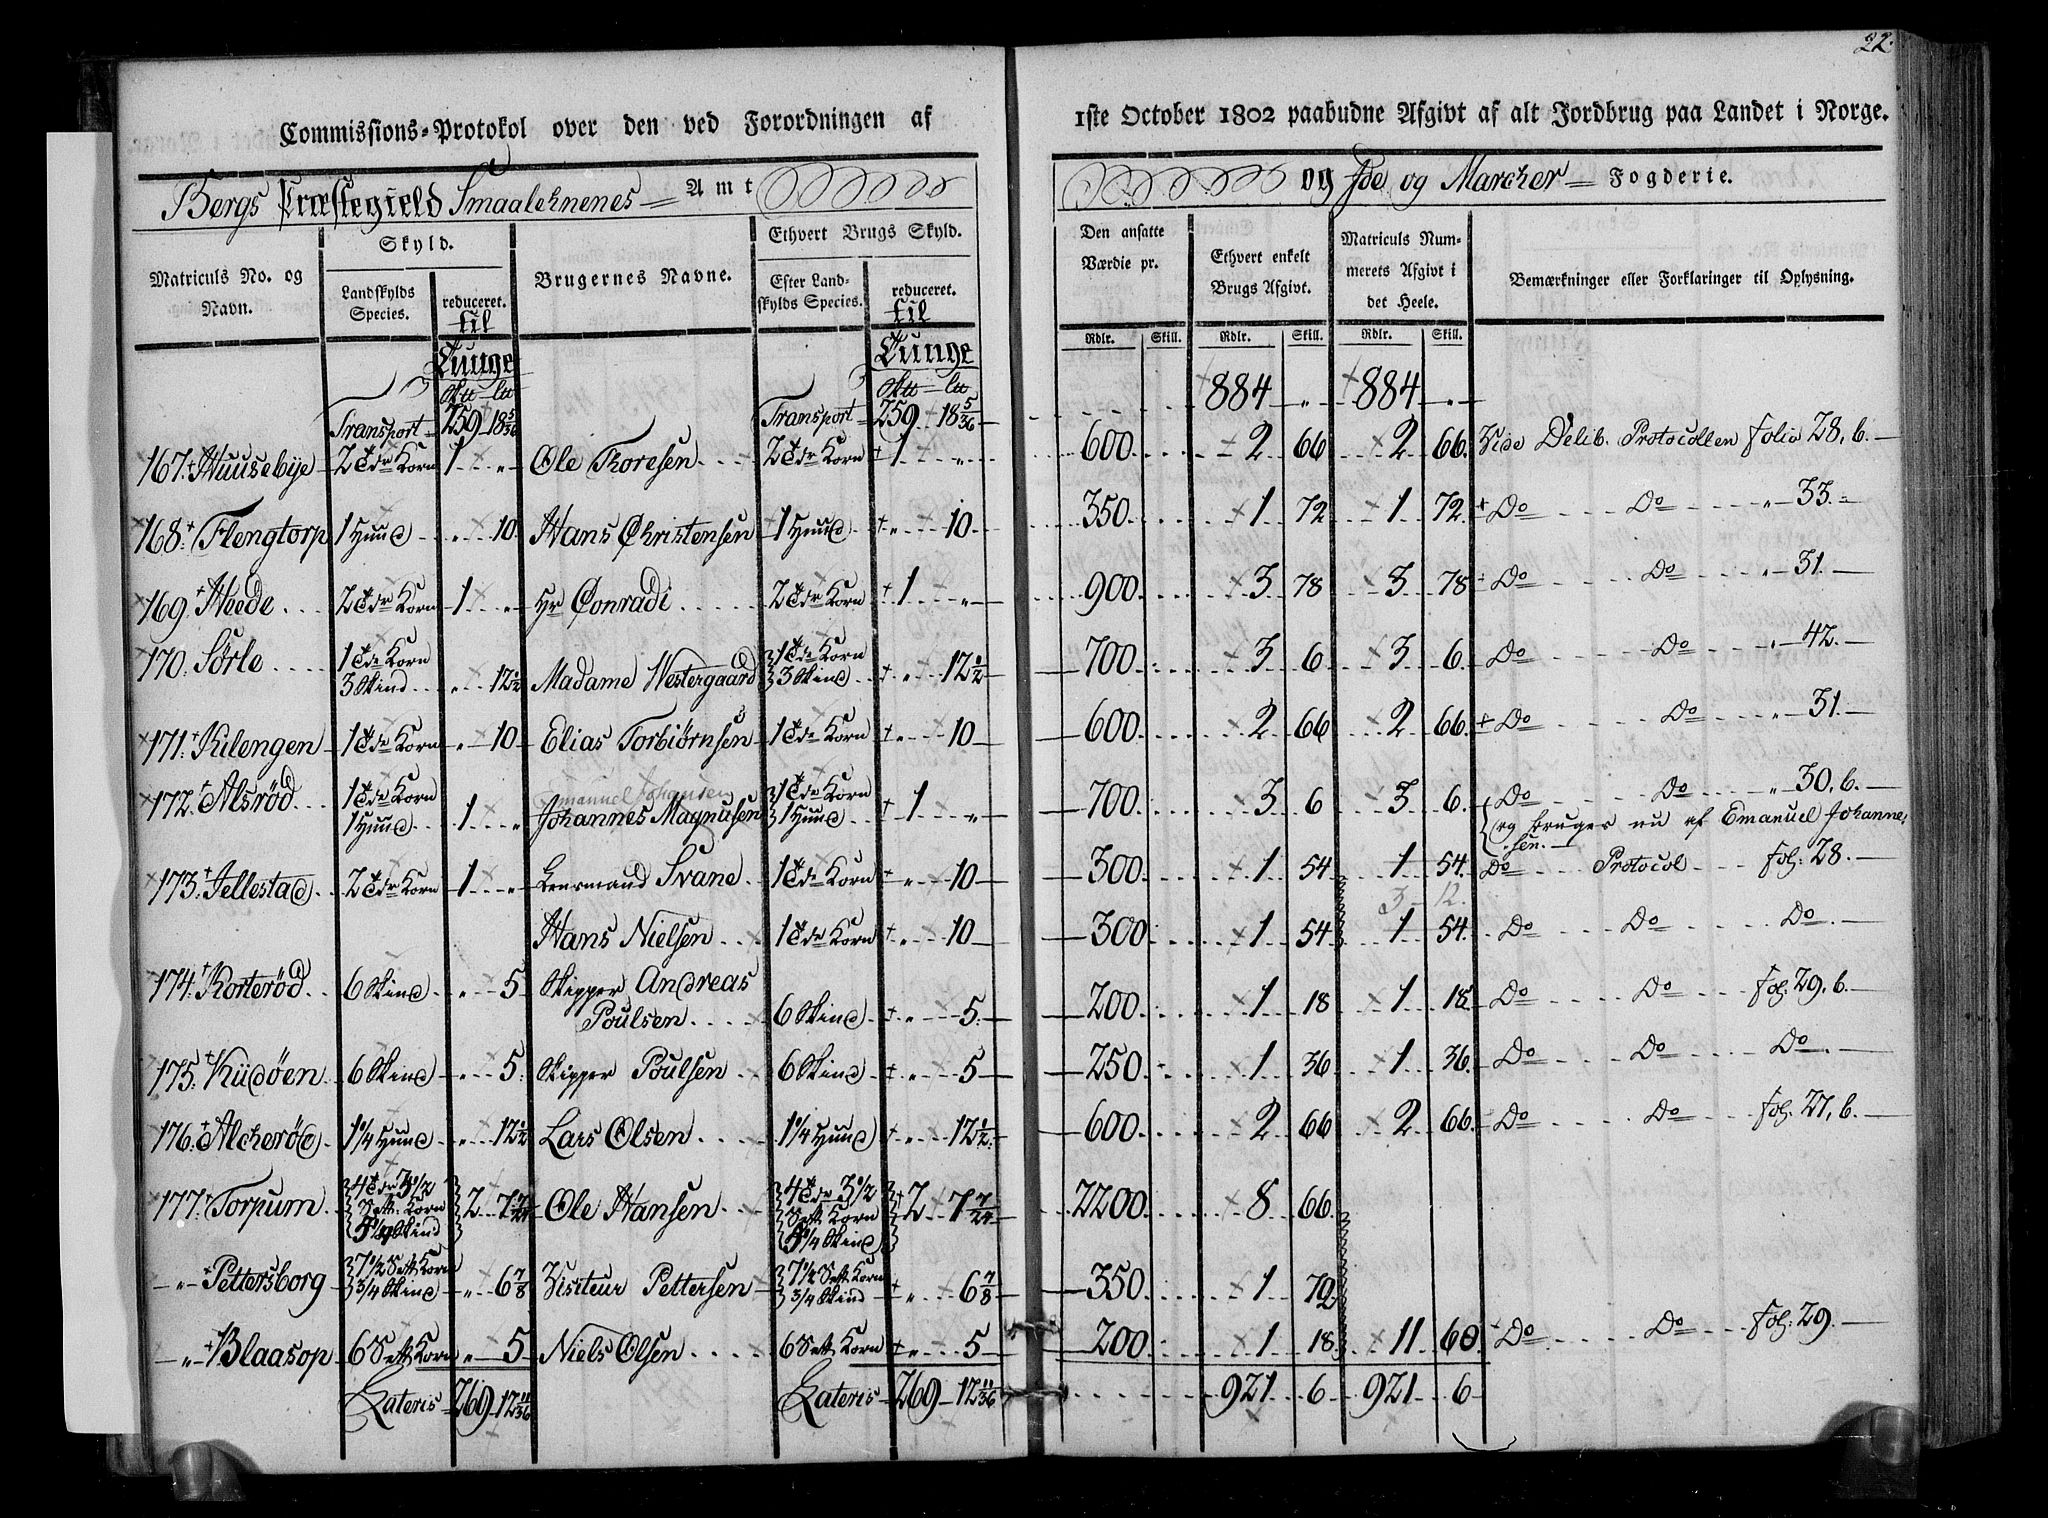 22.
Commissions-Protokol over den ved Forordningen af 1ste October 1802 paabudne Afgivt af alt Jordbrug paa Landet i Norge.
Bergs Præstegield Smaalehnenes Amt og Ide og Marcker Fogderie.
Matriculs No. og Navn. | Skyld. Landskylds Species. | reduceret. til Tunge | Brugernes Navne. | Ethvert Brugs Skyld. Efter Landskylds Species. | reduceret. til Tunge | Den ansatte Værdie pr. | Ethvert enkelt Brugs Afgivt. | Matriculs Nummerets Afgivt i det Heele. | Bemærkninger eller Forklaringer til Oplysning.
Rdlr. | Skill. | Rdlr. | Skill. | Rdlr. | Skill.
Transport 259 18 5/36 | Transport 259 18 5/36 | 884 " | 884 "
167. Huusebye 2 Tdr Korn 1 " | Ole Thoresen 2 Tdr Korn 1 " | 600 | 2 66 | 2 66 | Vide Delib. Protocollen folio 28, b.
168. Flengtorp 1 Huud " 10 | Hans Christensen 1 Huud " 10 | 350 | 1 72 | 1 72 | Do Do " 33.
169. Heede 2 Tdr Korn 1 " | Hr Conradi 2 Tdr Korn 1 " | 900 | 3 78 | 3 78 | Do Do " 31.
170. Sørle 1 Tde Korn 3 Skind " 12 1/2 | Madame Westergaard 1 Tde Korn 3 Skind " 12 1/2 | 700 | 3 6 | 3 6 | Do Do " 42.
171. Kilengen 1 Tde Korn " 10 | Elias Torbiørnsen 1 Tde Korn " 10 | 600 | 2 66 | 2 66 | Do Do " 31.
Emanuel Johansen
172. Alsrød 1 Tde Korn 1 Huud 1 " | Johannes Magnusen 1 Tde Korn 1 Huud 1 " | 700 | 3 6 | 3 6 | Do Do " 30, b.
og bruges nu af Emanuel Johannesen.
173. Jellestad 2 Tdr Korn 1 " | Lensmand Svane 1 Tde Korn " 10 | 300 | 1 54 | 1 54 | Do Protocol fol: 28.
3 - 12.
Hans Nielsen 1 Tde Korn " 10 | 300 | 1 54 | 1 54 | Do Do Do
174. Korterød 6 Skind " 5 | Skipper Andreas Poulsen 6 Skind " 5 | 200 | 1 18 | 1 18 | Do Do fol: 29, b.
175. Kudøen 6 Skind " 5 | Skipper Poulsen 6 Skind " 5 | 250 | 1 36 | 1 36 | Do Do Do
176. Alcherød 1 1/4 Huud " 12 1/2 | Lars Olsen 1 1/4 Huud " 12 1/2 | 600 | 2 66 | 2 66 | Do Do fol: 27, b.
177. Torpum 4 Tdr 3 1/2 Sett. Korn 5 1/4 Skind 2 7 7/24 | Ole Hansen 4 Tdr 3 1/2 Sett Korn 5 1/4 Skind 2 7 7/24 | 2200 | 8 66
" Pettersborg 7 1/2 Sett Korn 3/4 Skind " 6 7/8 | Visiteur Pettersen 7 1/2 Sett Korn 3/4 Skind " 6 7/8 | 350 | 1 72
" Blaasop 6 Sett Korn " 5 | Niels Olsen 6 Sett Korn " 5 | 200 | 1 18 | 11 60 | Do Do fol: 29.
Lateris 269 12 11/36 | Lateris 269 12 11/36 | 921 6 | 921 6